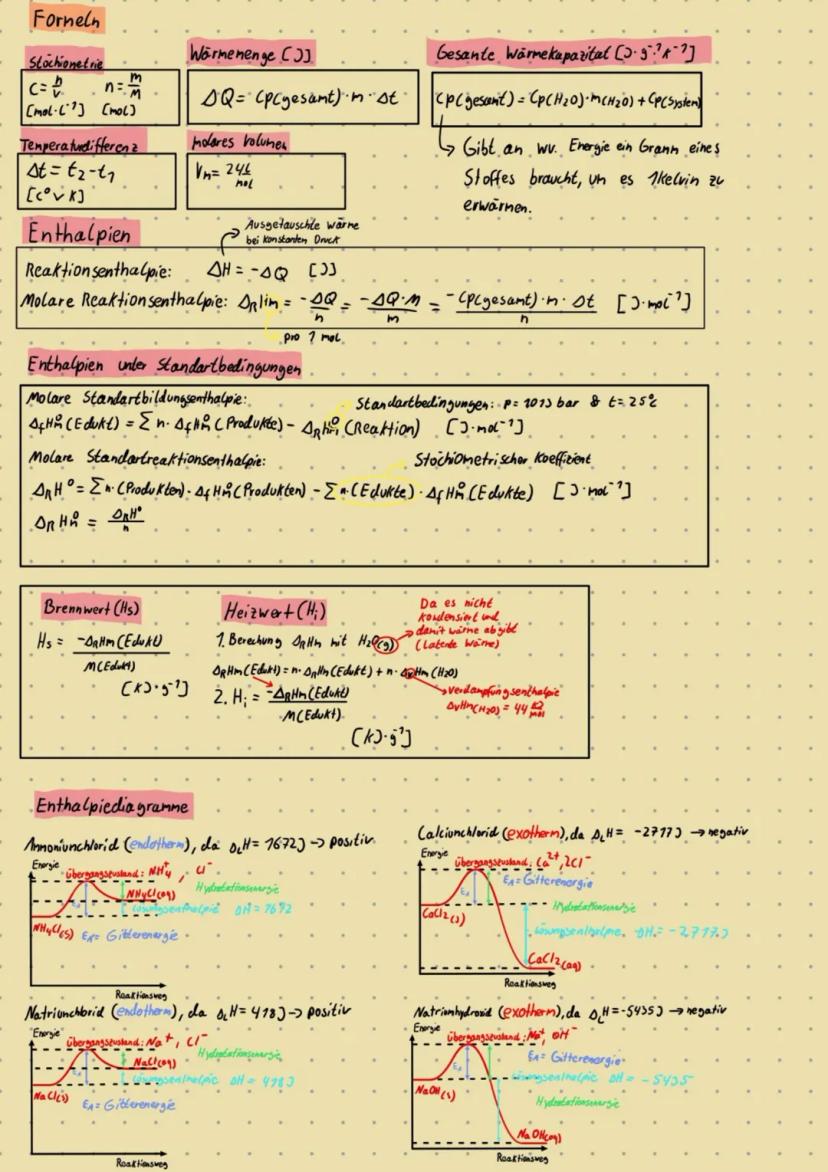 Formeln
Stöchiometrie
c = n/v n = m/M
[mol·L⁻¹] [mol]
Wärmemenge [J]
ΔQ = Cp(gesamt)·m·Δt
Gesamte Wärmekapazität [J·g⁻¹·K⁻¹]
Cp(gesamt) = Cp(H2O)·m(H2O) + Cp(System)
Gibt an wv. Energie ein Gramm eines
Stoffes braucht, um es 1Kelvin zu
erwärmen.
Temperaturdifferenz
Δt = t₂-t₁
[C° v K]
molares Volumen
Vm = 24 L/mol
Enthalpien
Ausgetauschte wärme
bei konstanten Druck
Reaktionsenthalpie: ΔH = -ΔQ [J]
Molare Reaktionsenthalpie: ΔRHm = -ΔQ/n = -ΔQ·M/m = -Cp(gesamt)·m·Δt/n [J·mol⁻¹]
pro 1 mol
Enthalpien unter Standartbedingungen
Molare Standartbildungsenthalpie:
Standartbedingungen: p = 1013 bar & t = 25°C
ΔfHm°(Edukt) = Σ n·ΔfHm°(Produkte) - ΔRHm°(Reaktion) [J·mol⁻¹]
Molare Standartreaktionsenthalpie:
Stöchiometrischer Koeffizient
ΔRH° = Σ n·(Produkten)·ΔfHm°(Produkten) - Σ n·(Edukte)·ΔfHm°(Edukte) [J·mol⁻¹]
ΔRHm° = ΔRH°/n
Brennwert (Hs)
Hs = -ΔRHm(Edukt)/M(Edukt)
[KJ·g⁻¹]
Heizwert (Hi)
1. Berechung ΔRHm mit H2O(g)
Da es nicht
kondensiert und
damit wärme abgibt
(Latente Wärme)
ΔRHm(Edukt) = n·ΔRHm(Edukt) + n·ΔvHm(H2O)
2. Hi = -ΔRHm(Edukt)/M(Edukt)
Verdampfungsenthalpie
ΔvHm(H2O) = 44 KJ/mol
[KJ·g⁻¹]
Enthalpiediagramme
Ammoniumchlorid (endotherm), da ΔLH = 1672J → positiv
Energie
Übergangszustand: NH₄⁺, Cl⁻
Hydratationsenergie
NH4Cl(aq)
EA
Lösungsenthalpie ΔH = 1692
NH4Cl(s)
EA = Gitterenergie
Reaktionsweg
Calciumchlorid (exotherm), da ΔLH = -2717J → negativ
Energie
Übergangszustand: Ca²⁺, 2Cl⁻
EA = Gitterenergie
EA
Hydratationsenergie
CaCl2(s)
Lösungsenthalpie ΔH = -2717J
CaCl2(aq)
Reaktionsweg
Natriumchlorid (endotherm), da ΔLH = 418J → positiv
Energie
Übergangszustand: Na⁺, Cl⁻
Hydratationsenergie
NaCl(aq)
EA
Lösungsenthalpie ΔH = 418J
NaCl(s)
EA = Gitterenergie
Reaktionsweg
Natriumhydroxid (exotherm), da ΔLH = -5435J → negativ
Energie
Übergangszustand: Na⁺, OH⁻
EA = Gitterenergie
EA
Lösungsenthalpie ΔH = -5435
NaOH(s)
Hydratationsenergie
NaOH(aq)
Reaktionsweg